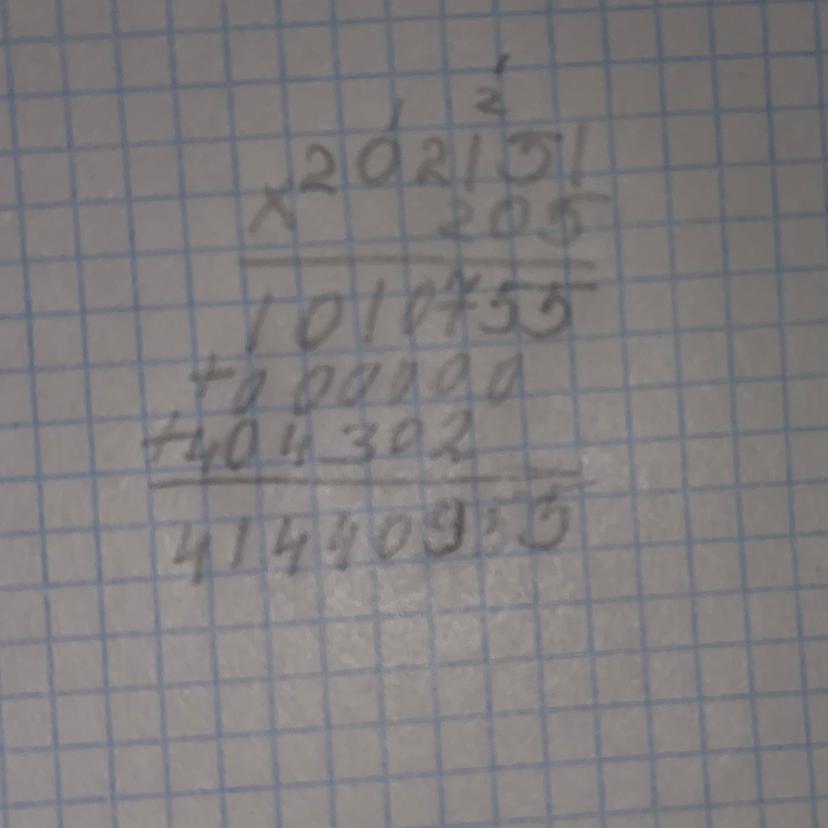 1
1 2
202151
× 205
1010755
+000000
+404302
41440955